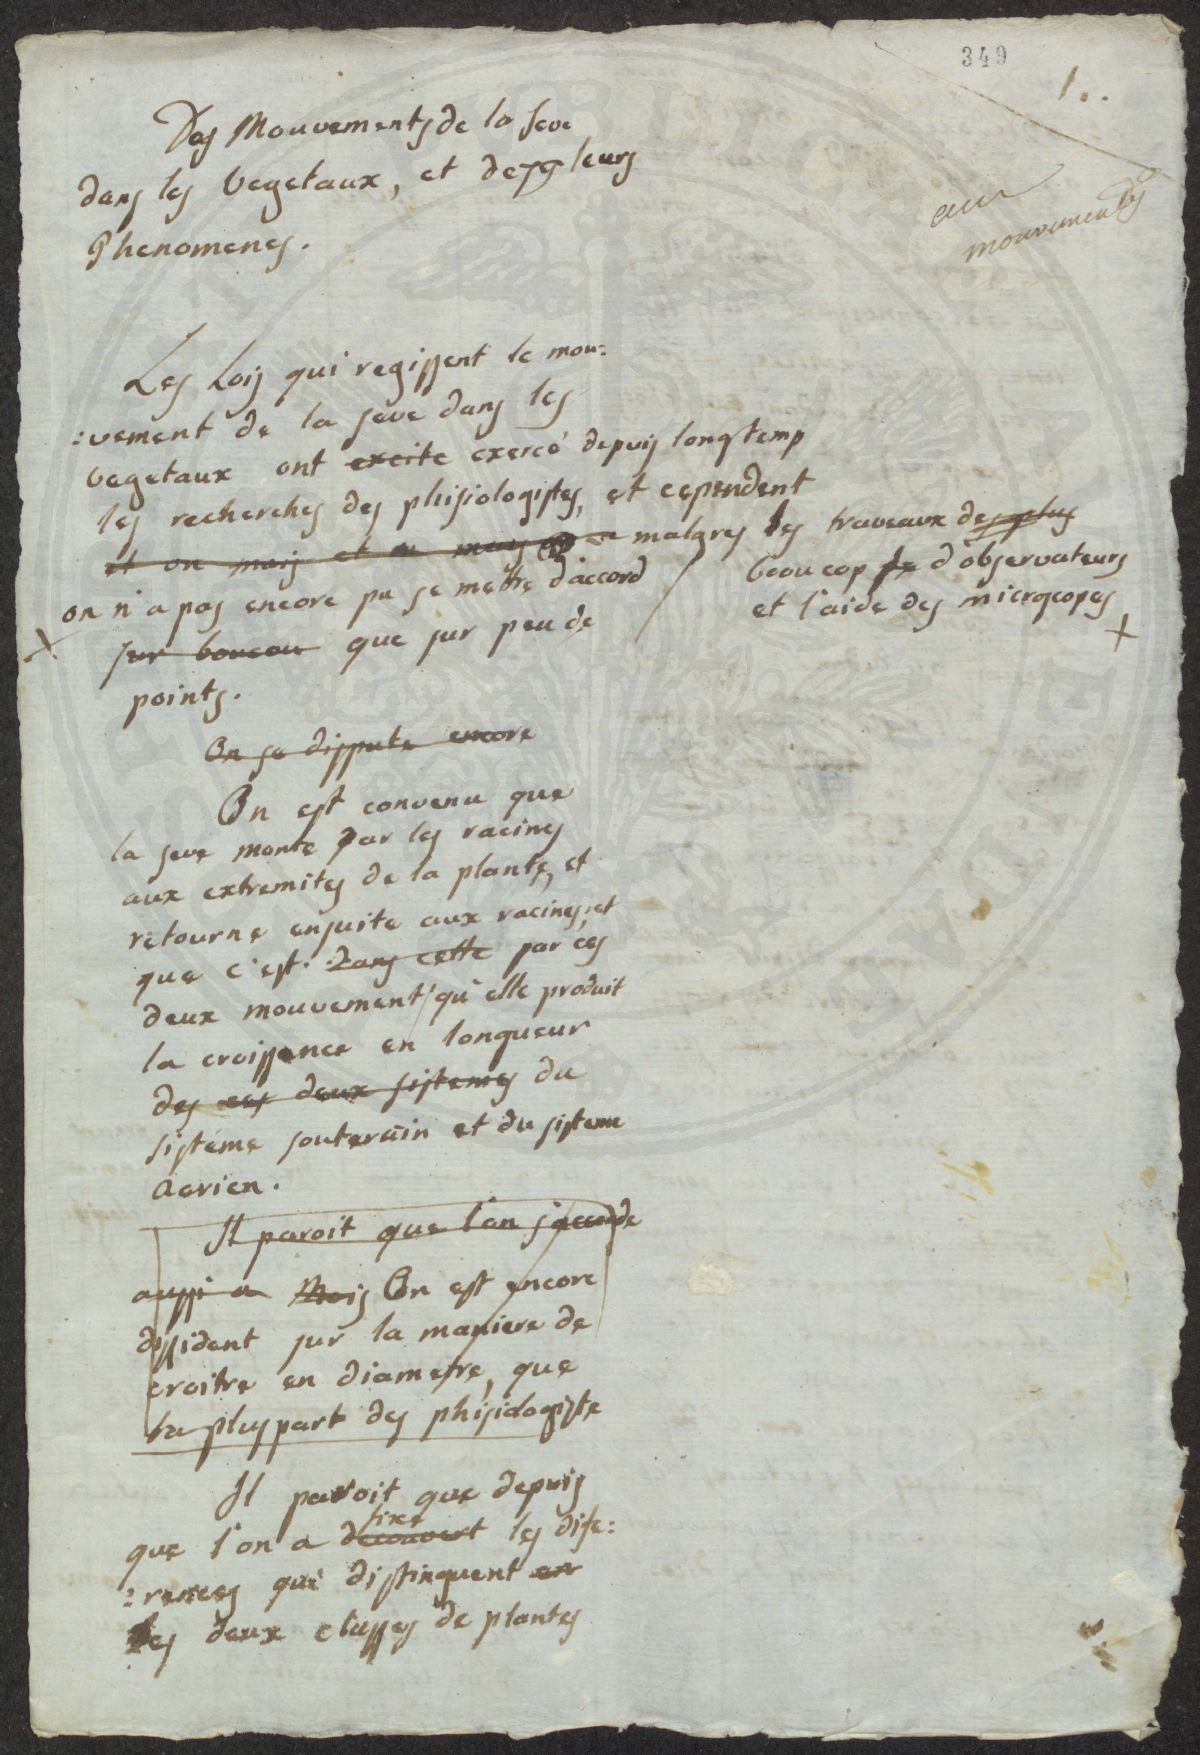 349
1..
Des Mouvements de la seve
dans les vegetaux, et de leurs
Phenomenes.
aux
mouvements
Les Lois qui regissent le mou:
:vement de la seve dans les
vegetaux ont excite exercé depuis longtemp
les recherches des phisiologistes, et cependent
et on mais et on mais malgres les traveaux des plus
beaucop de d'observateurs
et l'aide des microcopes
+
on n'a pas encore pu se mettre d'accord
X
sur boucou que sur peu de
points.
On se disspute encore
On est convenu que
la seve monte par les racines
aux extremites de la plante, et
retourne ensuite aux racines, et
que c'est. Dans cette par ces
deux mouvement qu'elle produit
la croissence en longueur
des ces deux sistemes du
sisteme souterain et du sisteme
aerien.
Il paroit que l'on s'accorde
aussi a Mais On est encore
dissident sur la maniere de
croitre en diametre, que
la pluspart des phisiologiste
Il paroit que depuis
fixé
que l'on a decouvert les dife:
:rences qui distinguent en
les deux classes de plantes